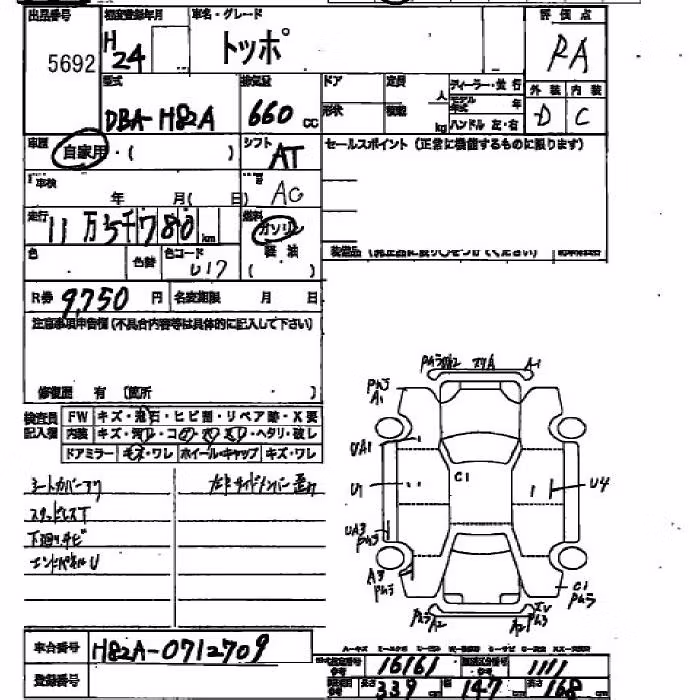 出品番号 初度登録年月 車名・グレード 評価点
5692 H24 トッポ RA
型式 排気量 ドア 定員 ディーラー・並行 外装 内装
DBA-H82A 660 cc 形状 積載 人 kg モデル年式 年 ハンドル 左・右 D C
車歴 自家用・( ) シフト AT セールスポイント (正常に機能するものに限ります)
車検 年 月( 日) AC
走行 11万5千780 km 燃料 ガソリ
軽油 ( )
色 色替 色コード U17
R券 9,750 円 名変期限 月 日
注意事項申告欄 (不具合内容等は具体的に記入して下さい)
修復歴 有 (箇所 )
検査員記入欄 FW キズ・飛石・ヒビ割・リペア跡・X要
内装 キズ・汚レ・コゲ・穴・スレ・ヘタリ・破レ
ドアミラー キズ・ワレ ホイール・キャップ キズ・ワレ
シートカバーアク
スタッドレスT
下廻りサビ
エンドパネルU
左右サイドメンバー歪み
A1
A1
UA1
C1
U1
U4
UA3
A3
C1
A2
A2
車台番号 H82A-0712709
登録番号
型式指定番号 参考 16161 類別区分番号 参考 1111
参考 長さ 339 cm 幅 147 cm 高さ 168 cm